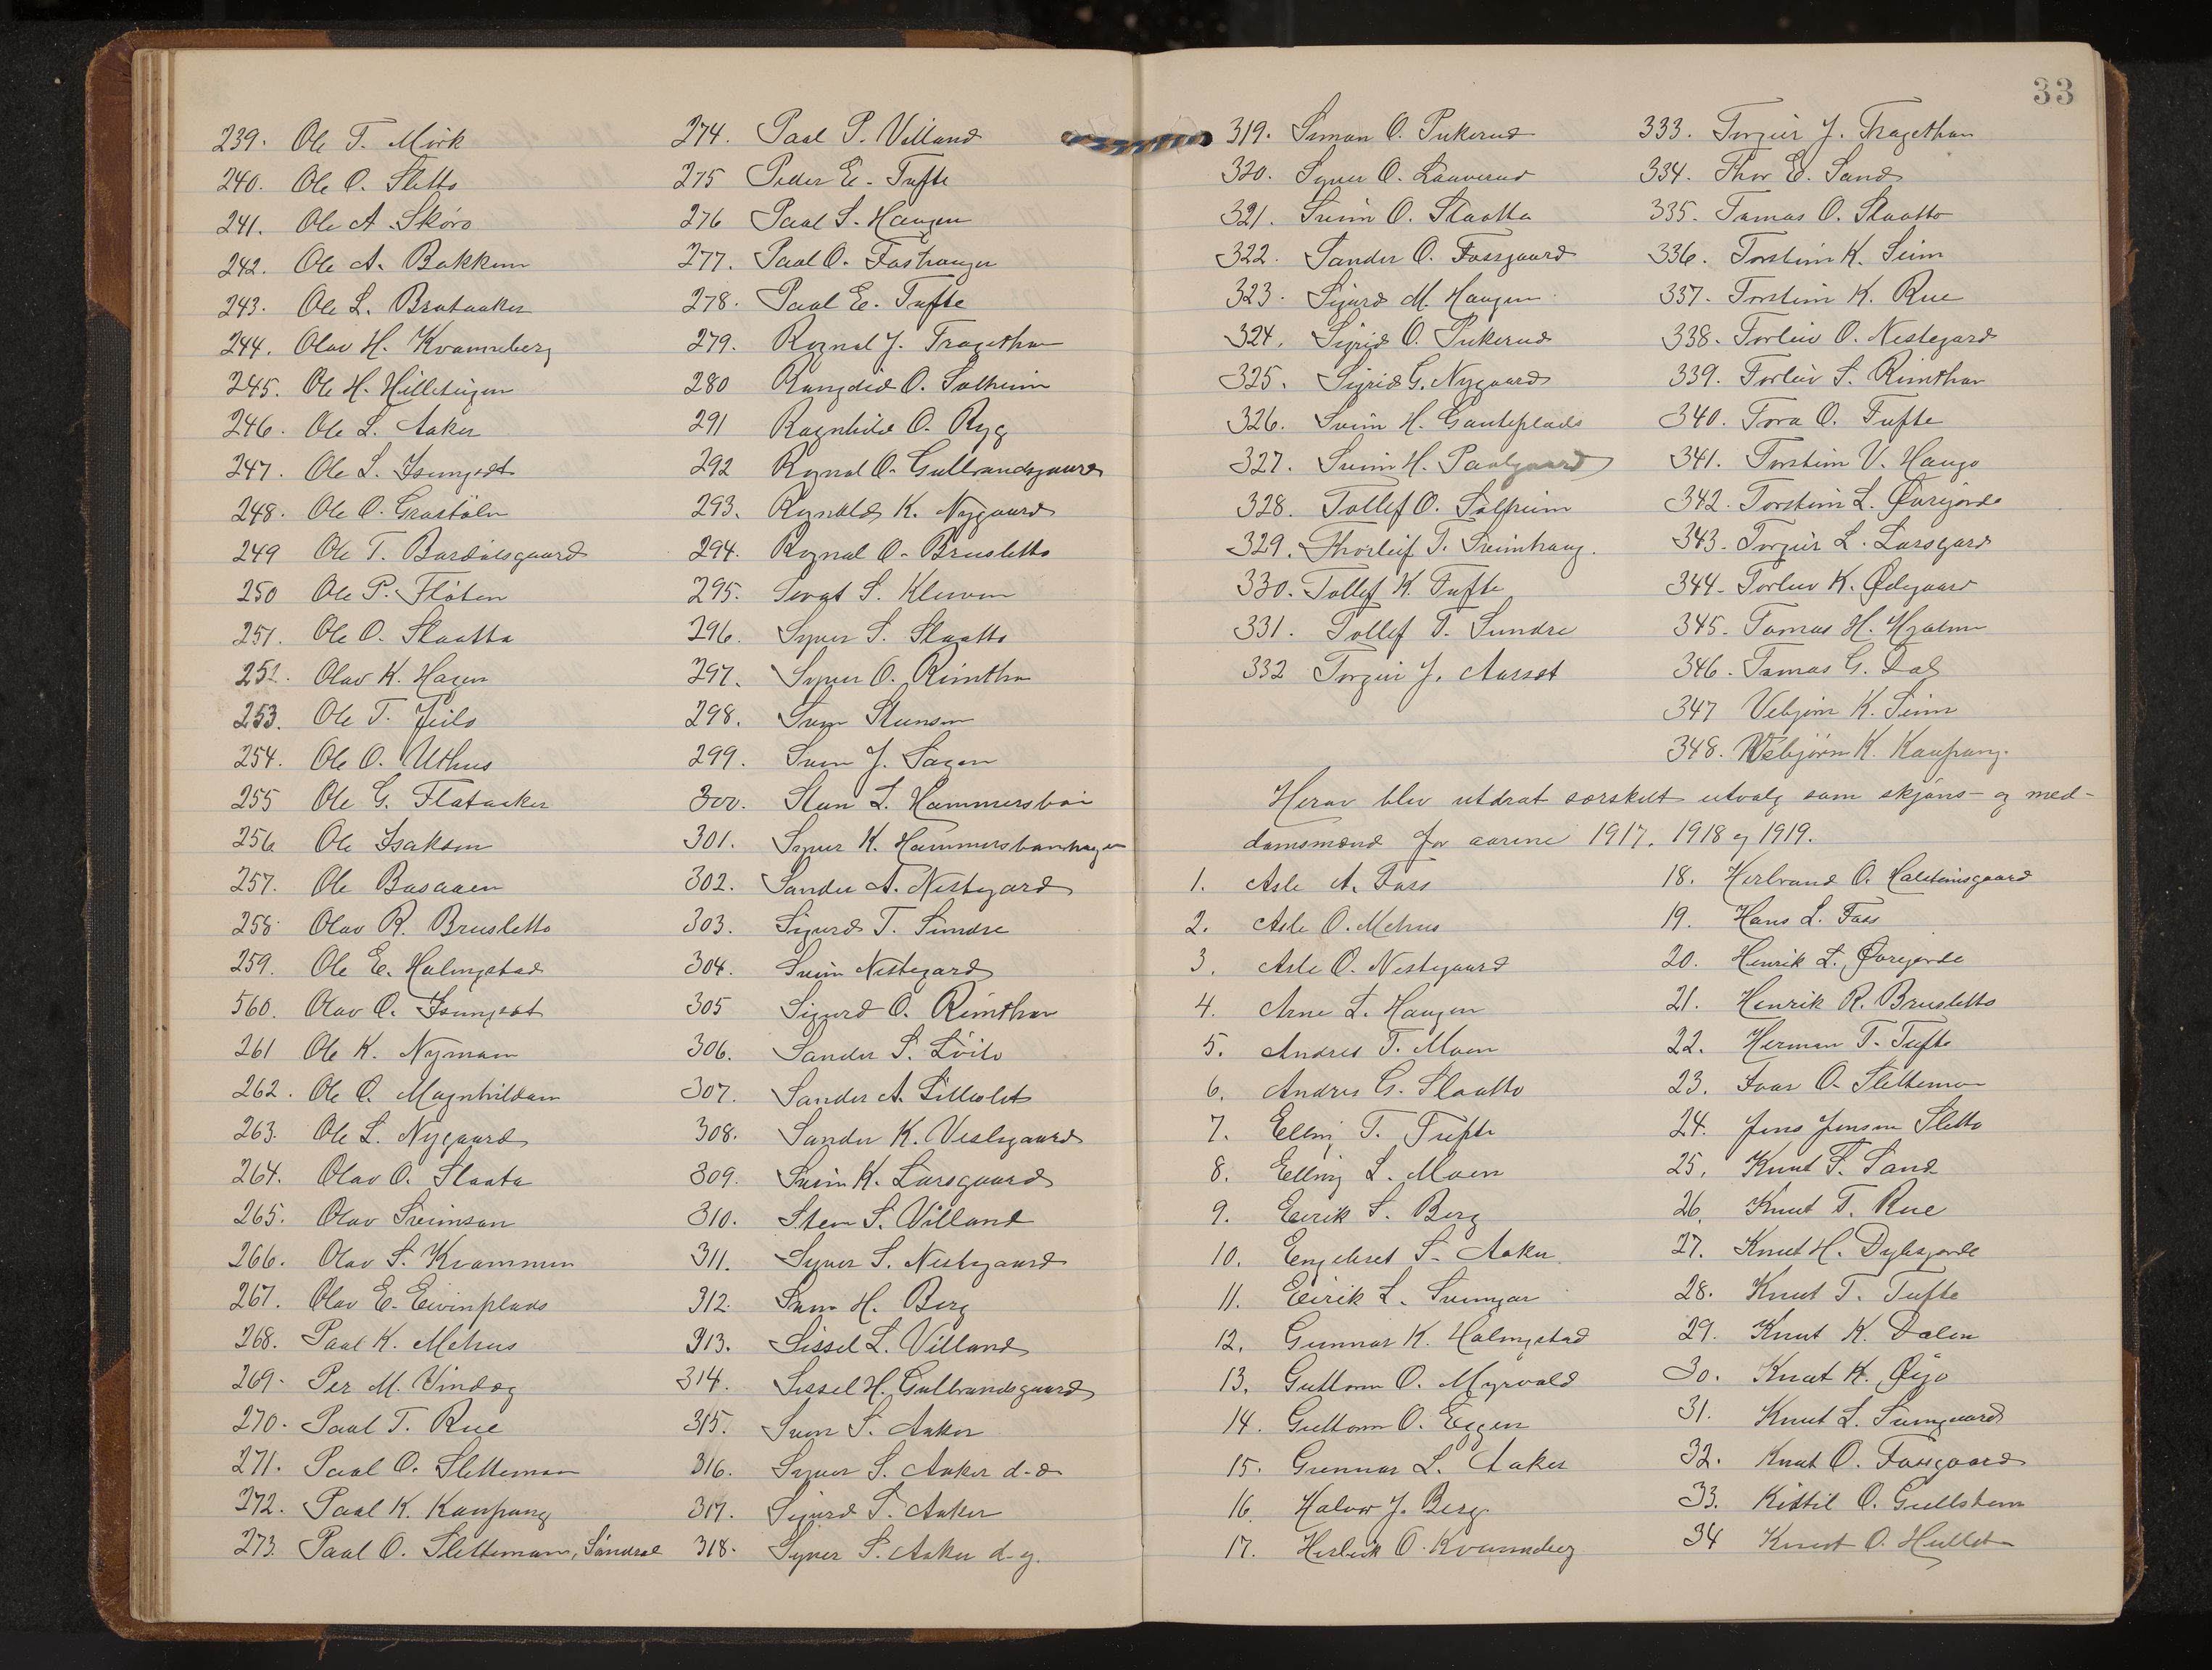 33
239. Ole T. Mörk
240. Ole O. Sletto
241. Ole A. Sköro
242. Ole A. Bakken
243. Ole L. Brataaker
244. Olav H. Kvanneberg
245. Ole H. Filleteigen
246. Ole L. Aaker
247. Ole L. Isungset
248. Ole O. Grastöln
249 Ole T. Bardölsgaard
250 Ole P. Flöten
251. Ole O. Slaatta
252. Olav K. Hagen
253. Ole T. Jeilo
254. Ole O. Uthus
255 Ole G. Flataaker
256 Ole Isaksen
257. Ole Basaaen
258. Olav R. Brusletto
259. Ole E. Holmgstad
560. Olav O. Isungset
261 Ole K. Nymoen
262. Ole O. Magnhildøen
263. Ole L. Nygaard
264. Olav O. Slaata
265. Olav Sveinson
266. Olav S. Kvammen
267. Olav E. Eivinplads
268. Paal K. Mehus
269. Per M. Vindeg
270. Paal T. Rue
271. Paal O. Slettemoen
272. Paal K. Kaupang
273. Paal O. Slettemoen, Söndral
274. Paal P. Villand
275 Peder E. Tufte
276 Paal S. Haugen
277. Paal O. Fostrauger
278. Paal E. Tufte
279. Ragnal J. Tragethon
280 Rangdid O. Solheim
291 Ragnhild O. Ryg
292 Ragnal O. Gulbrandsgaard
293. Ragnald K. Nygaard
294. Ragnal O. Brusletto
295. Sevat S. Kleiven
296. Syver S. Slaatto
297. Syver O. Rimthn
298. Svein Steinson
299. Svein J. Sagen
300. Sten L. Hammersbøi
301. Syver K. Hammersbøenhagen
302. Sander A. Nestegard
303. Sigurd T. Sundre
304. Svein Nestegard
305 Sigurd O. Rimthon
306. Sander S. Löilo
307. Sander A. Lilleslet
308. Sander K. Veslegaard
309. Svein K. Larsgaard
310. Sten S. Villand
311. Syver S. Nestegaard
312. Svein H. Berg
313. Sissel L. Villand
314. Sissel H. Gulbrandsgaard
315. Sven S. Aaker
316. Syver S. Aaker d. e.
317. Sigurd S. Aaker
318. Syver S. Aaker d. y.
319. Simon O. Pukerud
320. Syver O. Laaverud
321. Svein O. Slaatta
322. Sander O. Fossgaard
323. Sigurd M. Haugen
324. Sigrid O. Pukerud
325. Sigrid G. Nygaard
326. Svein H. Gauteplads
327. Svein H. Paalgaard
328. Tollef O. Solheim
329. Thorleif T. Sveinhaug.
330. Tollef K. Tufte
331. Tollef T. Sundre
332 Torgeir J. Aasset
333. Torgeir J. Tragethon
334. Thor E. Sand
335. Tomas O. Slaatto
336. Torstein K. Seim
337. Torstein K. Rue
338. Torleiv O. Nestegard
339. Torleiv S. Rimthon
340. Tora O. Tufte
341. Torstein V. Haugo
342. Torstein L. Øvregjorde
343. Torgeir L. Larsgard
344. Torleiv K. Ødegaard
345. Tomas H. Hjalmen
346. Tomas G. Dal
347 Vebjörn K. Seim
348. Vebjörn K. Kaupang.
Herav blev utdrat særskilt utvalg som skjöns- og med-
domsmænd for aarene 1917, 1918 og 1919.
1. Asle A. Foss
2. Asle O. Mehus
3. Asle O. Nestegaard
4. Arne L. Haugen
5. Andres T. Moen
6. Andres G. Slaatto
7. Elling T. Tufte
8. Elling L. Moen
9. Eirik S. Berg
10. Engebret S. Aaker
11. Eirik L. Sveingar
12. Gunnar K. Holmgstad
13. Guttorm O. Myrvold
14. Guttorm O. Eggen
15. Gunnar L. Aaker
16. Halvor J. Berg
17. Herleik O. Kvanneberg
18. Herbrand O. Halsteinsgaard
19. Hans L. Foss
20. Henrik L. Øvregjorde
21. Henrik R. Brusletto
22. Herman T. Tufte
23. Ivar O. Slettemoen
24. Jens Jensen Sletto
25. Knut F. Sand
26. Knut T. Rue
27. Knut H. Dyksjorde
28. Knut T. Tufte
29. Knut K. Dalen
30. Knut K. Øijo
31. Knut L. Sveingaard
32. Knut O. Fossgaard
33. Kittil O. Gullstein
34 Knut O. Hullet